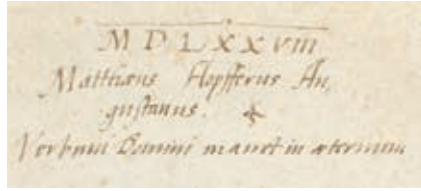 M D L X X VIII
Matthæus Hopfferus Au,
gustanus.
Verbum Domini manet in æternum